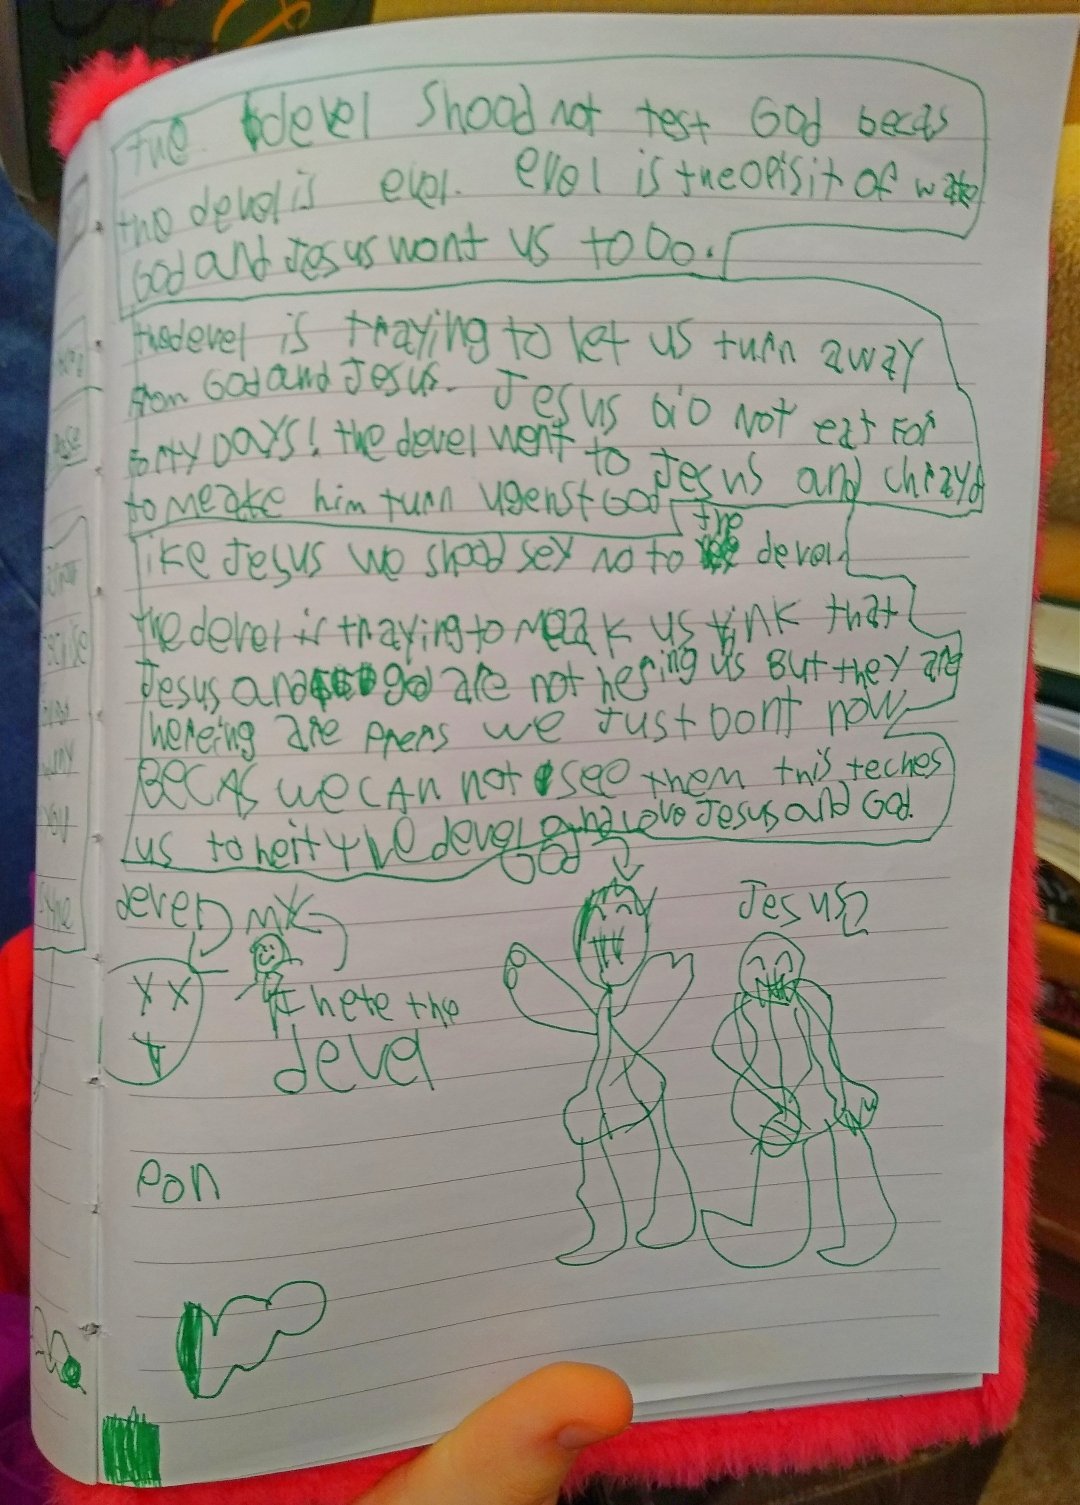 the devel shood not test God becas
the devel is evel. evel is the opisit of wate
God and Jesus wont us to Do.
the devel is traying to let us turn away
from God and Jesus. Jesus did not eat For
forty DAYS! the devel went to Jesus and chrayd
to meake him turn ugenst God
like Jesus we shood sey no to the devel.
the devel is traying to meak us tink that
Jesus and god are not hering us But they are
hereing are prers we Just Dont now
BECAS we CAN not see them this teches
us to heit the devel and love Jesus and God.
God
devel
Jesus
I hete the
devel